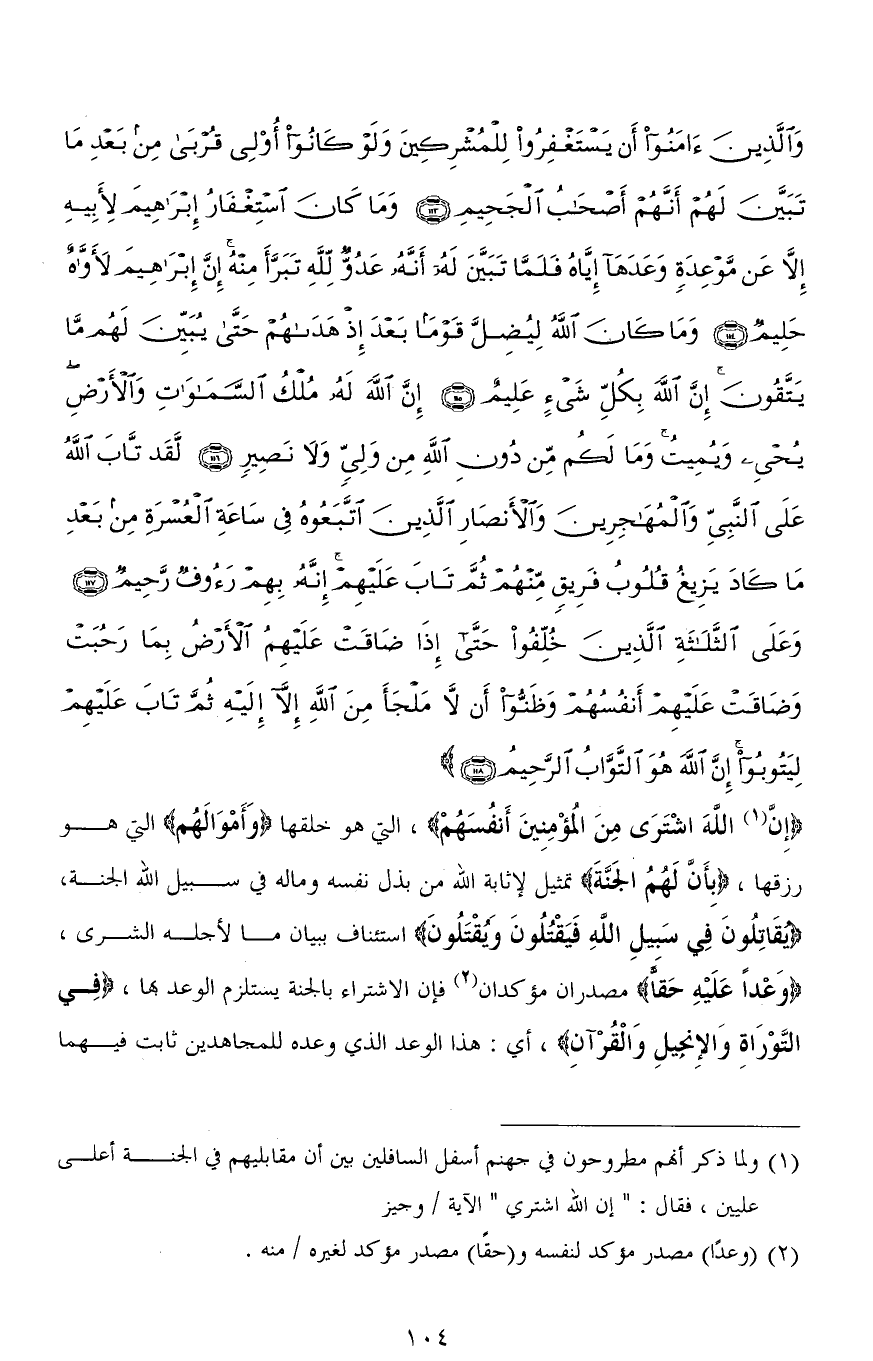 وَٱلَّذِينَ ءَامَنُوٓا۟ أَن يَسْتَغْفِرُوا۟ لِلْمُشْرِكِينَ وَلَوْ كَانُوٓا۟ أُو۟لِى قُرْبَىٰ مِنۢ بَعْدِ مَا
تَبَيَّنَ لَهُمْ أَنَّهُمْ أَصْحَٰبُ ٱلْجَحِيمِ ١١٣ وَمَا كَانَ ٱسْتِغْفَارُ إِبْرَٰهِيمَ لِأَبِيهِ
إِلَّا عَن مَّوْعِدَةٍ وَعَدَهَآ إِيَّاهُ فَلَمَّا تَبَيَّنَ لَهُۥٓ أَنَّهُۥ عَدُوٌّ لِّلَّهِ تَبَرَّأَ مِنْهُ ۚ إِنَّ إِبْرَٰهِيمَ لَأَوَّٰهٌ
حَلِيمٌ ١١٤ وَمَا كَانَ ٱللَّهُ لِيُضِلَّ قَوْمًۢا بَعْدَ إِذْ هَدَىٰهُمْ حَتَّىٰ يُبَيِّنَ لَهُم مَّا
يَتَّقُونَ ۚ إِنَّ ٱللَّهَ بِكُلِّ شَىْءٍ عَلِيمٌ ١١٥ إِنَّ ٱللَّهَ لَهُۥ مُلْكُ ٱلسَّمَٰوَٰتِ وَٱلْأَرْضِ ۖ
يُحْىِۦ وَيُمِيتُ ۚ وَمَا لَكُم مِّن دُونِ ٱللَّهِ مِن وَلِىٍّ وَلَا نَصِيرٍ ١١٦ لَّقَد تَّابَ ٱللَّهُ
عَلَى ٱلنَّبِىِّ وَٱلْمُهَٰجِرِينَ وَٱلْأَنصَارِ ٱلَّذِينَ ٱتَّبَعُوهُ فِى سَاعَةِ ٱلْعُسْرَةِ مِنۢ بَعْدِ
مَا كَادَ يَزِيغُ قُلُوبُ فَرِيقٍ مِّنْهُمْ ثُمَّ تَابَ عَلَيْهِمْ ۚ إِنَّهُۥ بِهِمْ رَءُوفٌ رَّحِيمٌ ١١٧
وَعَلَى ٱلثَّلَٰثَةِ ٱلَّذِينَ خُلِّفُوا۟ حَتَّىٰٓ إِذَا ضَاقَتْ عَلَيْهِمُ ٱلْأَرْضُ بِمَا رَحُبَتْ
وَضَاقَتْ عَلَيْهِمْ أَنفُسُهُمْ وَظَنُّوٓا۟ أَن لَّا مَلْجَأَ مِنَ ٱللَّهِ إِلَّآ إِلَيْهِ ثُمَّ تَابَ عَلَيْهِمْ
لِيَتُوبُوٓا۟ ۚ إِنَّ ٱللَّهَ هُوَ ٱلتَّوَّابُ ٱلرَّحِيمُ ١١٨﴾
﴿إِنَّ(١) اللَّهَ اشْتَرَى مِنَ الْمُؤْمِنِينَ أَنفُسَهُمْ﴾ ، التي هو خلقها ﴿وَأَمْوَالَهُم﴾ التي هـــو
رزقها ، ﴿بِأَنَّ لَهُمُ الْجَنَّةَ﴾ تمثيل لإثابة الله من بذل نفسه وماله في ســـبيل الله الجنـــة،
﴿يُقَاتِلُونَ فِي سَبِيلِ اللَّهِ فَيَقْتُلُونَ وَيُقْتَلُونَ﴾ استئناف ببيان مـــا لأجلـــه الشـــرى ،
﴿وَعْداً عَلَيْهِ حَقاًّ﴾ مصدران مؤكدان(٢) فإن الاشتراء بالجنة يستلزم الوعد بها ، ﴿فِـــي
التَّوْرَاةِ وَالإِنجِيلِ وَالْقُرْآنِ﴾ ، أي : هذا الوعد الذي وعده للمجاهدين ثابت فيـــهما
(١) ولما ذكر أنهم مطروحون في جهنم أسفل السافلين بين أن مقابليهم في الجنـــة أعلـــى
عليين ، فقال : " إن الله اشتري " الآية / وجيز
(٢) (وعدًا) مصدر مؤكد لنفسه و(حقًا) مصدر مؤكد لغيره / منه .
١٠٤